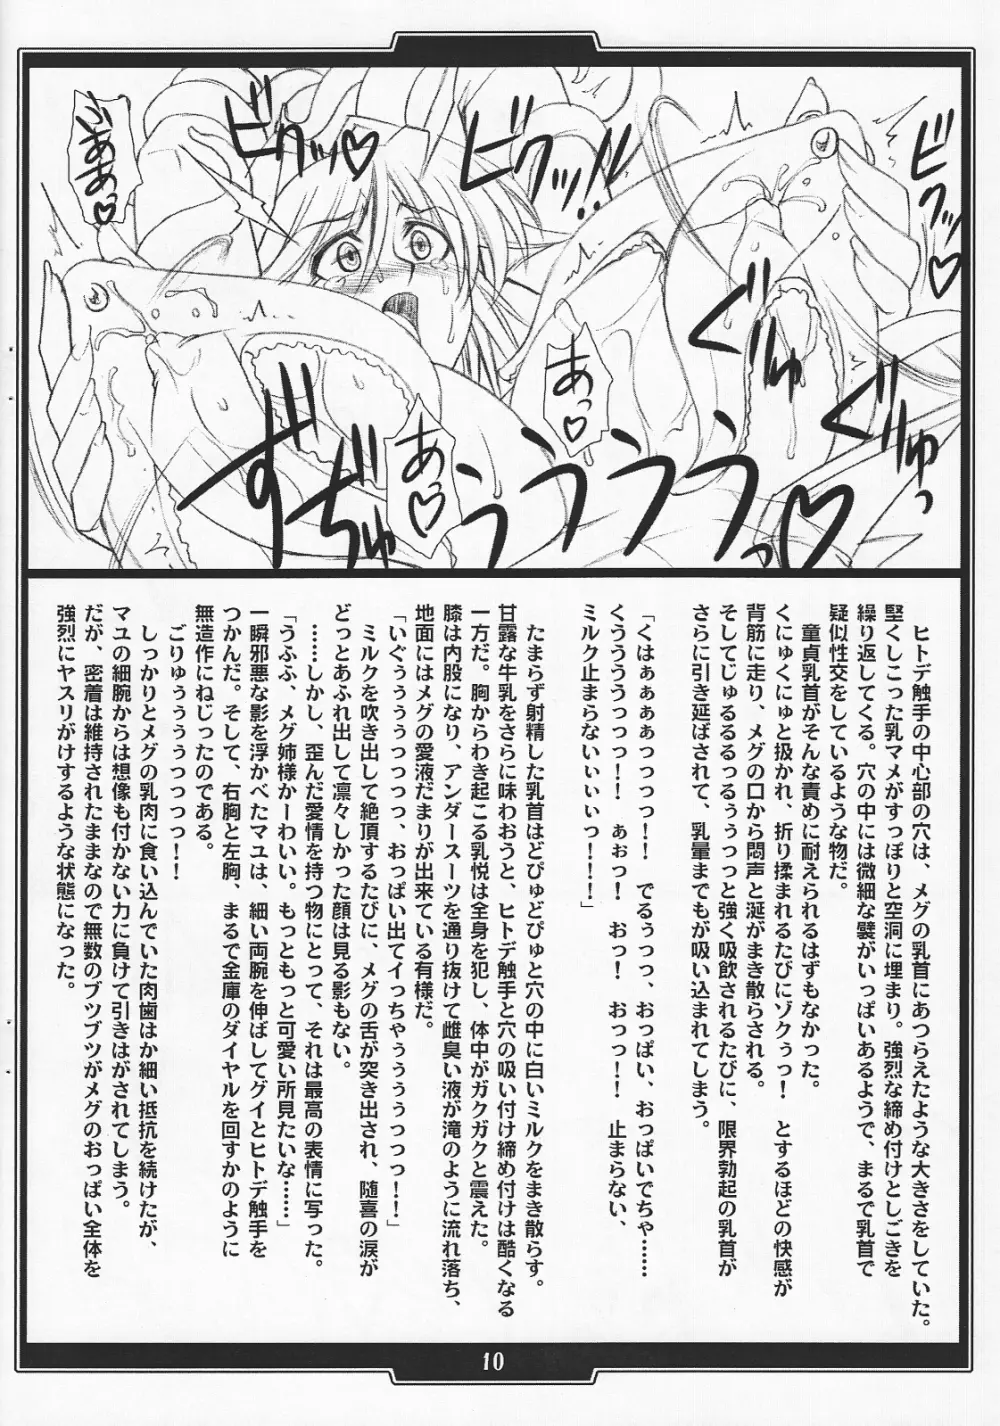 ごああっ♡
ビクッ♡
ビクッ!!
ビクッ♡
ぐちゅ
ぐちゅっ
あっ♡
あっ♡
ずぢゅぅぅぅぅぅっ♡
ヒトデ触手の中心部の穴は、メグの乳首にあつらえたような大きさをしていた。
堅くしこった乳マメがすっぽりと空洞に埋まり。強烈な締め付けとしごきを
繰り返してくる。穴の中には微細な襞がいっぱいあるようで、まるで乳首で
疑似性交をしているような物だ。
童貞乳首がそんな責めに耐えられるはずもなかった。
くにゅくにゅと扱かれ、折り揉まれるたびにゾクぅっ！　とするほどの快感が
背筋に走り、メグの口から悶声と涎がまき散らされる。
そしてじゅるるるっるぅぅっっと強く吸飲されるたびに、限界勃起の乳首が
さらに引き延ばされて、乳暈までもが吸い込まれてしまう。
「くはぁぁぁぁっっっっ！！　でるぅっっ、おっぱい、おっぱいでちゃ……
くうううううっっっ！！　ぁぉっ！　おっ！　おっっ！！　止まらない、
ミルク止まらないぃぃぃっ！！！」
たまらず射精した乳首はどぴゅどぴゅと穴の中に白いミルクをまき散らす。
甘露な牛乳をさらに味わおうと、ヒトデ触手と穴の吸い付け締め付けは酷くなる
一方だ。胸からわき起こる乳悦は全身を犯し、体中がガクガクと震えた。
膝は内股になり、アンダースーツを通り抜けて雌臭い液が滝のように流れ落ち、
地面にはメグの愛液だまりが出来ている有様だ。
「いぐぅぅぅぅっっっっ、おっぱい出てイっちゃぅぅぅぅっっっ！！」
ミルクを吹き出して絶頂するたびに、メグの舌が突き出され、随喜の涙が
どっとあふれ出して凛々しかった顔は見る影もない。
……しかし、歪んだ愛情を持つ物にとって、それは最高の表情に写った。
「うふふ、メグ姉様かーわいい。もっともっと可愛い所見たいな……」
一瞬邪悪な影を浮かべたマユは、細い両腕を伸ばしてグイとヒトデ触手を
つかんだ。そして、右胸と左胸、まるで金庫のダイヤルを回すかのように
無造作にねじったのである。
ごりゅぅぅぅぅっっっっ！！
しっかりとメグの乳肉に食い込んでいた肉歯はか細い抵抗を続けたが、
マユの細腕からは想像も付かない力に負けて引きはがされてしまう。
だが、密着は維持されたままなので無数のブツブツがメグのおっぱい全体を
強烈にヤスリがけするような状態になった。
10